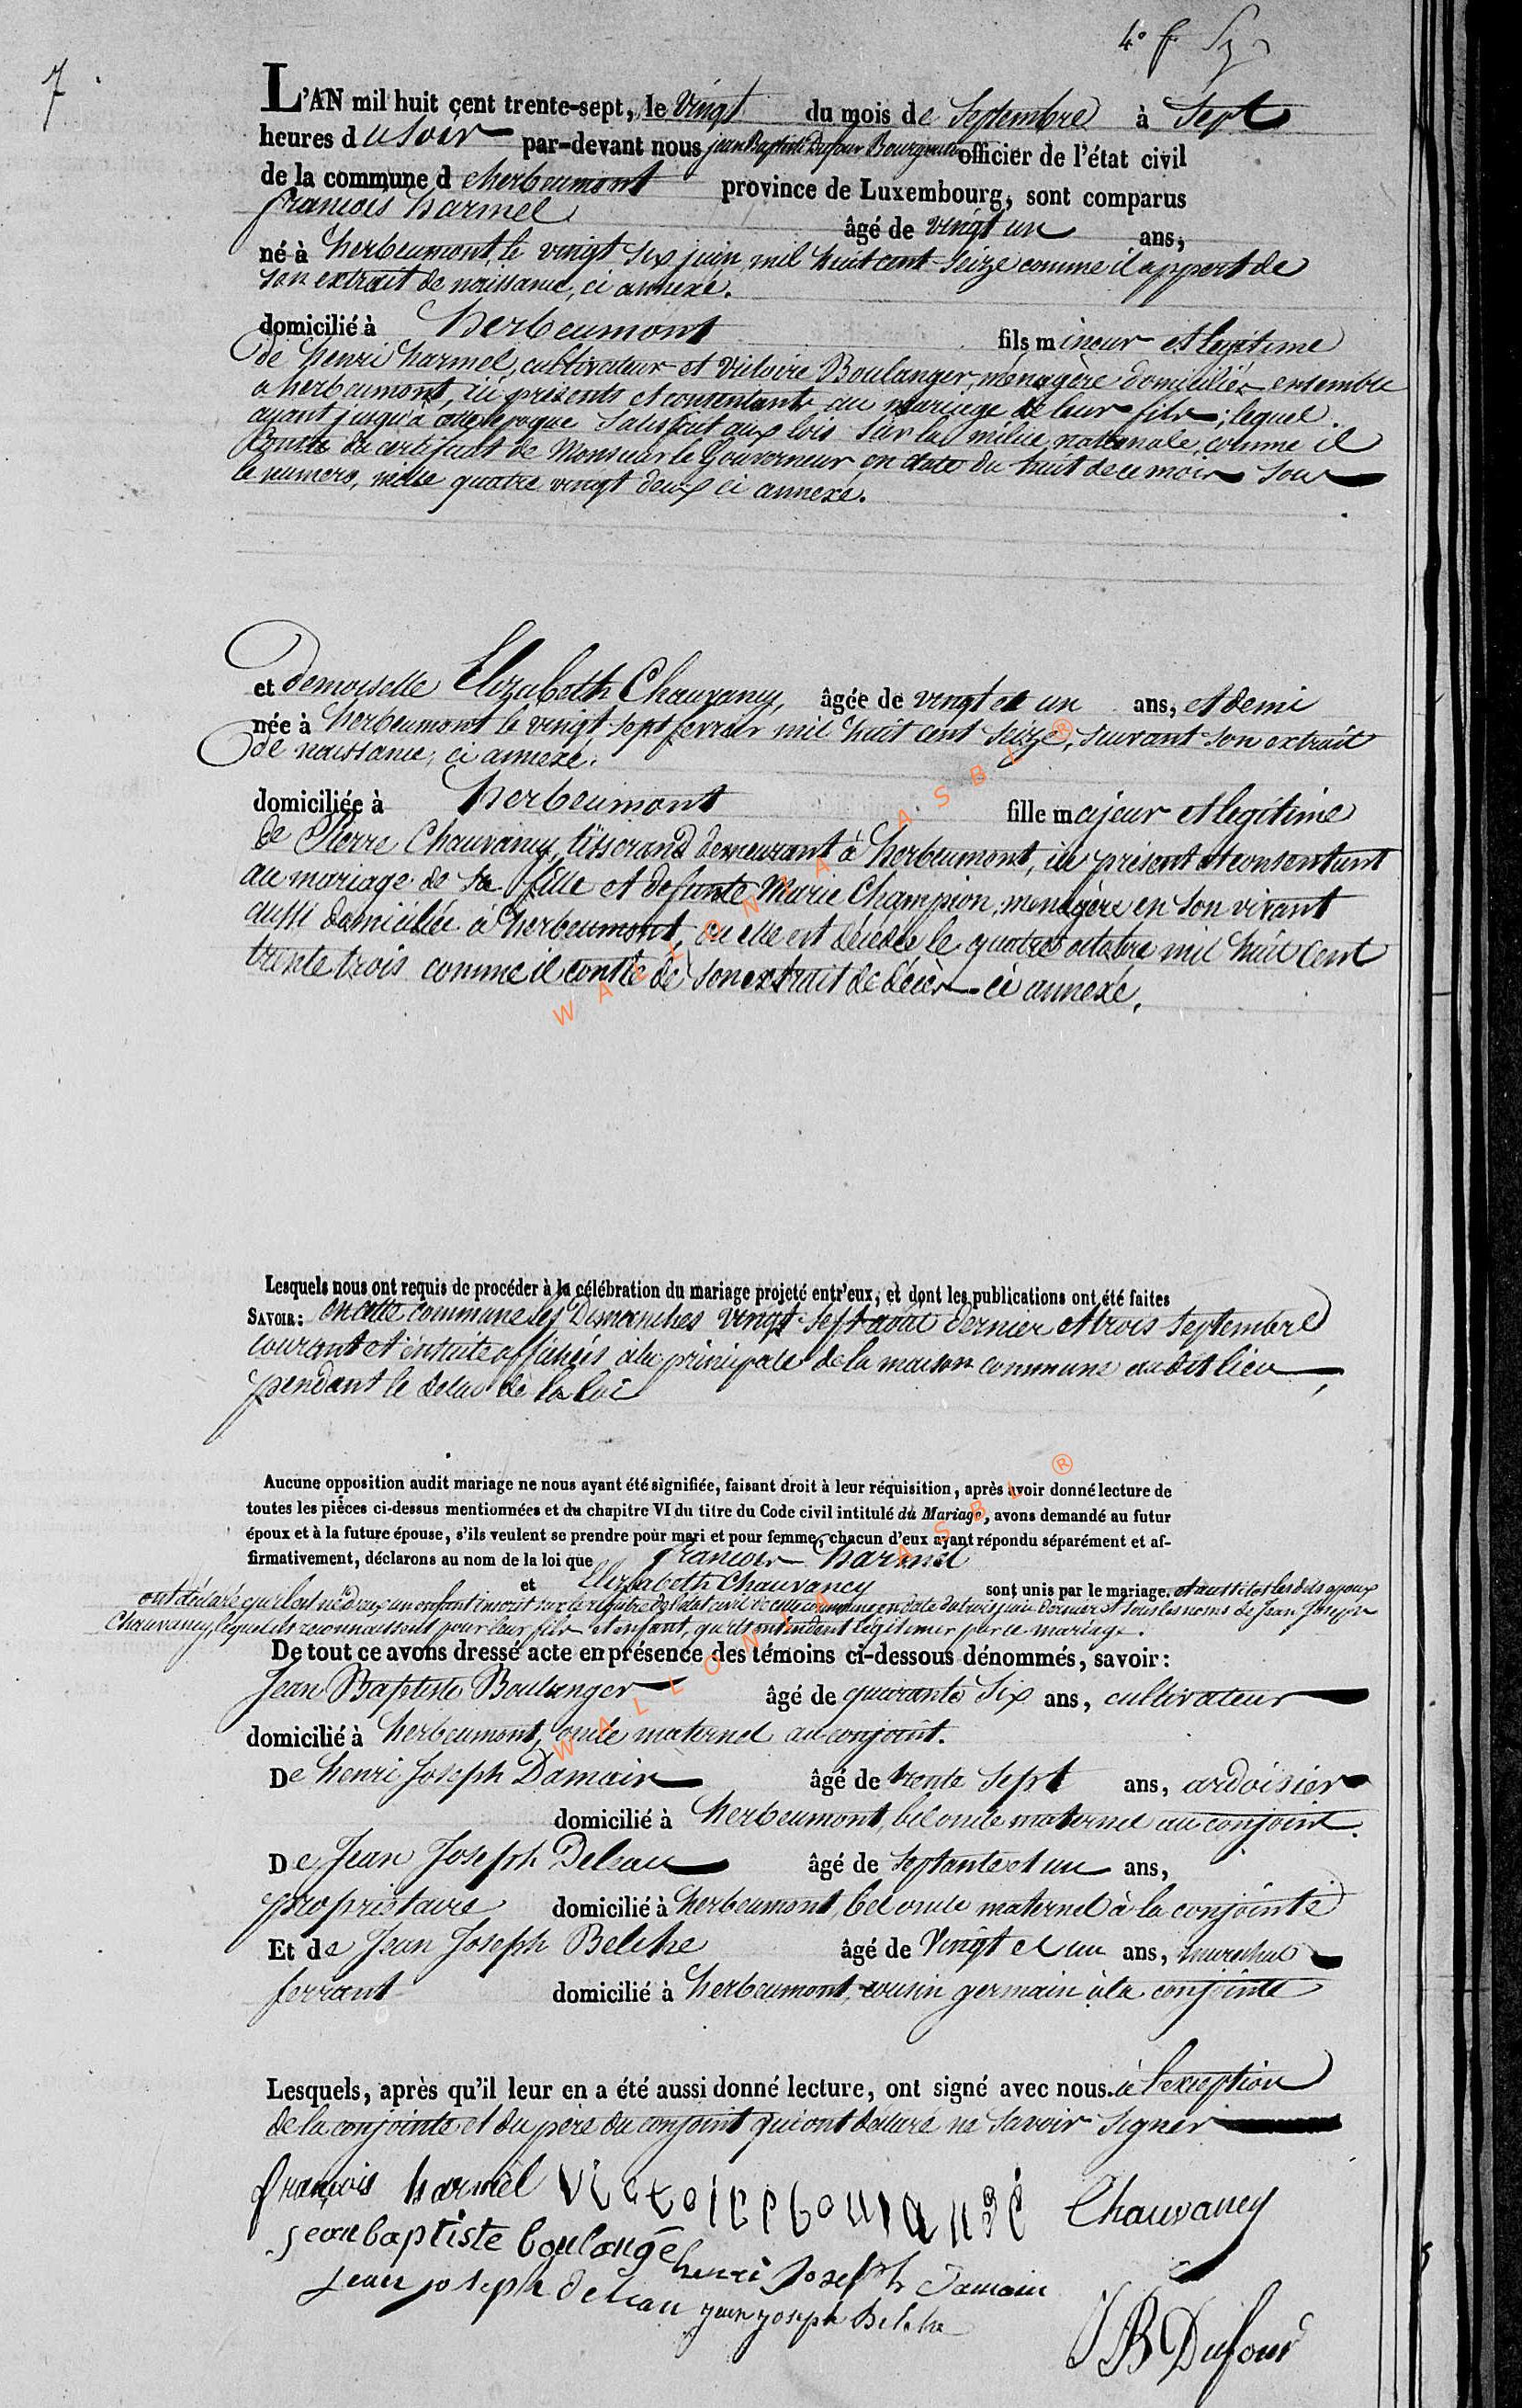 7
4° f
L'AN mil huit cent trente-sept, le vingt du mois de Septembre à Sept
heures du soir par-devant nous jean Baptiste Dufour Bourgmestre officier de l'état civil
de la commune d herbeumont province de Luxembourg, sont comparus
françois harmel
âgé de vingt un ans,
né à herbeumont le vingt six juin mil huit cent seize comme il appert de
son extrait de naissance, ci annexé.
domicilié à herbeumont fils mineur et légitime
de henri harmel, cultivateur et Victoire Boulanger, ménagère domiciliés ensemble
a herbeumont, ici présents et consentants au mariage de leur fils ; lequel
ayant jusqu'à cette époque satisfait aux lois sur la milice nationale, comme il
conste du certificat de Monsieur le Gouverneur en date du huit de ce mois sous
le numero, mille quatre vingt deux ci annexé.
et demoiselle Elizabeth Chauvancy, âgée de vingt et un ans, et demi
née à herbeumont le vingt sept fevrier mil huit cent seize, suivant son extrait
de naissance, ci annexé.
domiciliée à herbeumont fille majeur et légitime
de Pierre Chauvancy, tisserand demeurant à herbeumont, ici présent et consentant
au mariage de sa fille et defunte Marie Champion, menagère en son vivant
aussi domiciliée à herbeumont, ou elle est décédée le quatre octobre mil huit cent
trente trois comme il conste de son extrait de décès ci annexé.
Lesquels nous ont requis de procéder à la célébration du mariage projeté entr'eux, et dont les publications ont été faites
SAVOIR: en cette commune les Dimanches vingt-sept août dernier et trois septembre
courant et ensuite affichées à la principale de la maison commune audit lieu
pendant le délai de la loi
Aucune opposition audit mariage ne nous ayant été signifiée, faisant droit à leur réquisition, après avoir donné lecture de
toutes les pièces ci-dessus mentionnées et du chapitre VI du titre du Code civil intitulé du Mariage, avons demandé au futur
époux et à la future épouse, s'ils veulent se prendre pour mari et pour femme, chacun d'eux ayant répondu séparément et af-
firmativement, déclarons au nom de la loi que francois harmel
et Elizabeth Chauvancy sont unis par le mariage. et aussitôt les dits époux
ont déclaré qu'il est né d'eux un enfant inscrit sur le registre de l'état civil de cette commune en date du trois juin dernier et sous les noms de Jean Joseph
Chauvancy, lequel ils reconnaissent pour leur fils et enfant, qu'ils entendent légitimer par ce mariage.
De tout ce avons dressé acte en présence des témoins ci-dessous dénommés, savoir:
Jean Baptiste Boulanger âgé de quarante six ans, cultivateur
domicilié à herbeumont, oncle maternel au conjoint.
De henri Joseph Damain âgé de trente sept ans, ardoisier
domicilié à herbeumont, bel oncle maternel au conjoint.
De Jean Joseph Deleau âgé de septante et un ans,
propriétaire domicilié à herbeumont, bel oncle maternel à la conjointe
Et de Jean Joseph Belche âgé de Vingt et un ans, marechal
ferrant domicilié à herbeumont, cousin germain à la conjointe
Lesquels, après qu'il leur en a été aussi donné lecture, ont signé avec nous. à l'exception
de la conjointe et du père du conjoint qui ont déclaré ne savoir signer
françois harmel victoire boulangé Chauvancy
jean baptiste boulangé henri Joseph Damain
jean joseph deleau jean joseph Belche
JB Dufour
WALLONIA ASBL ®
WALLONIA ASBL ®